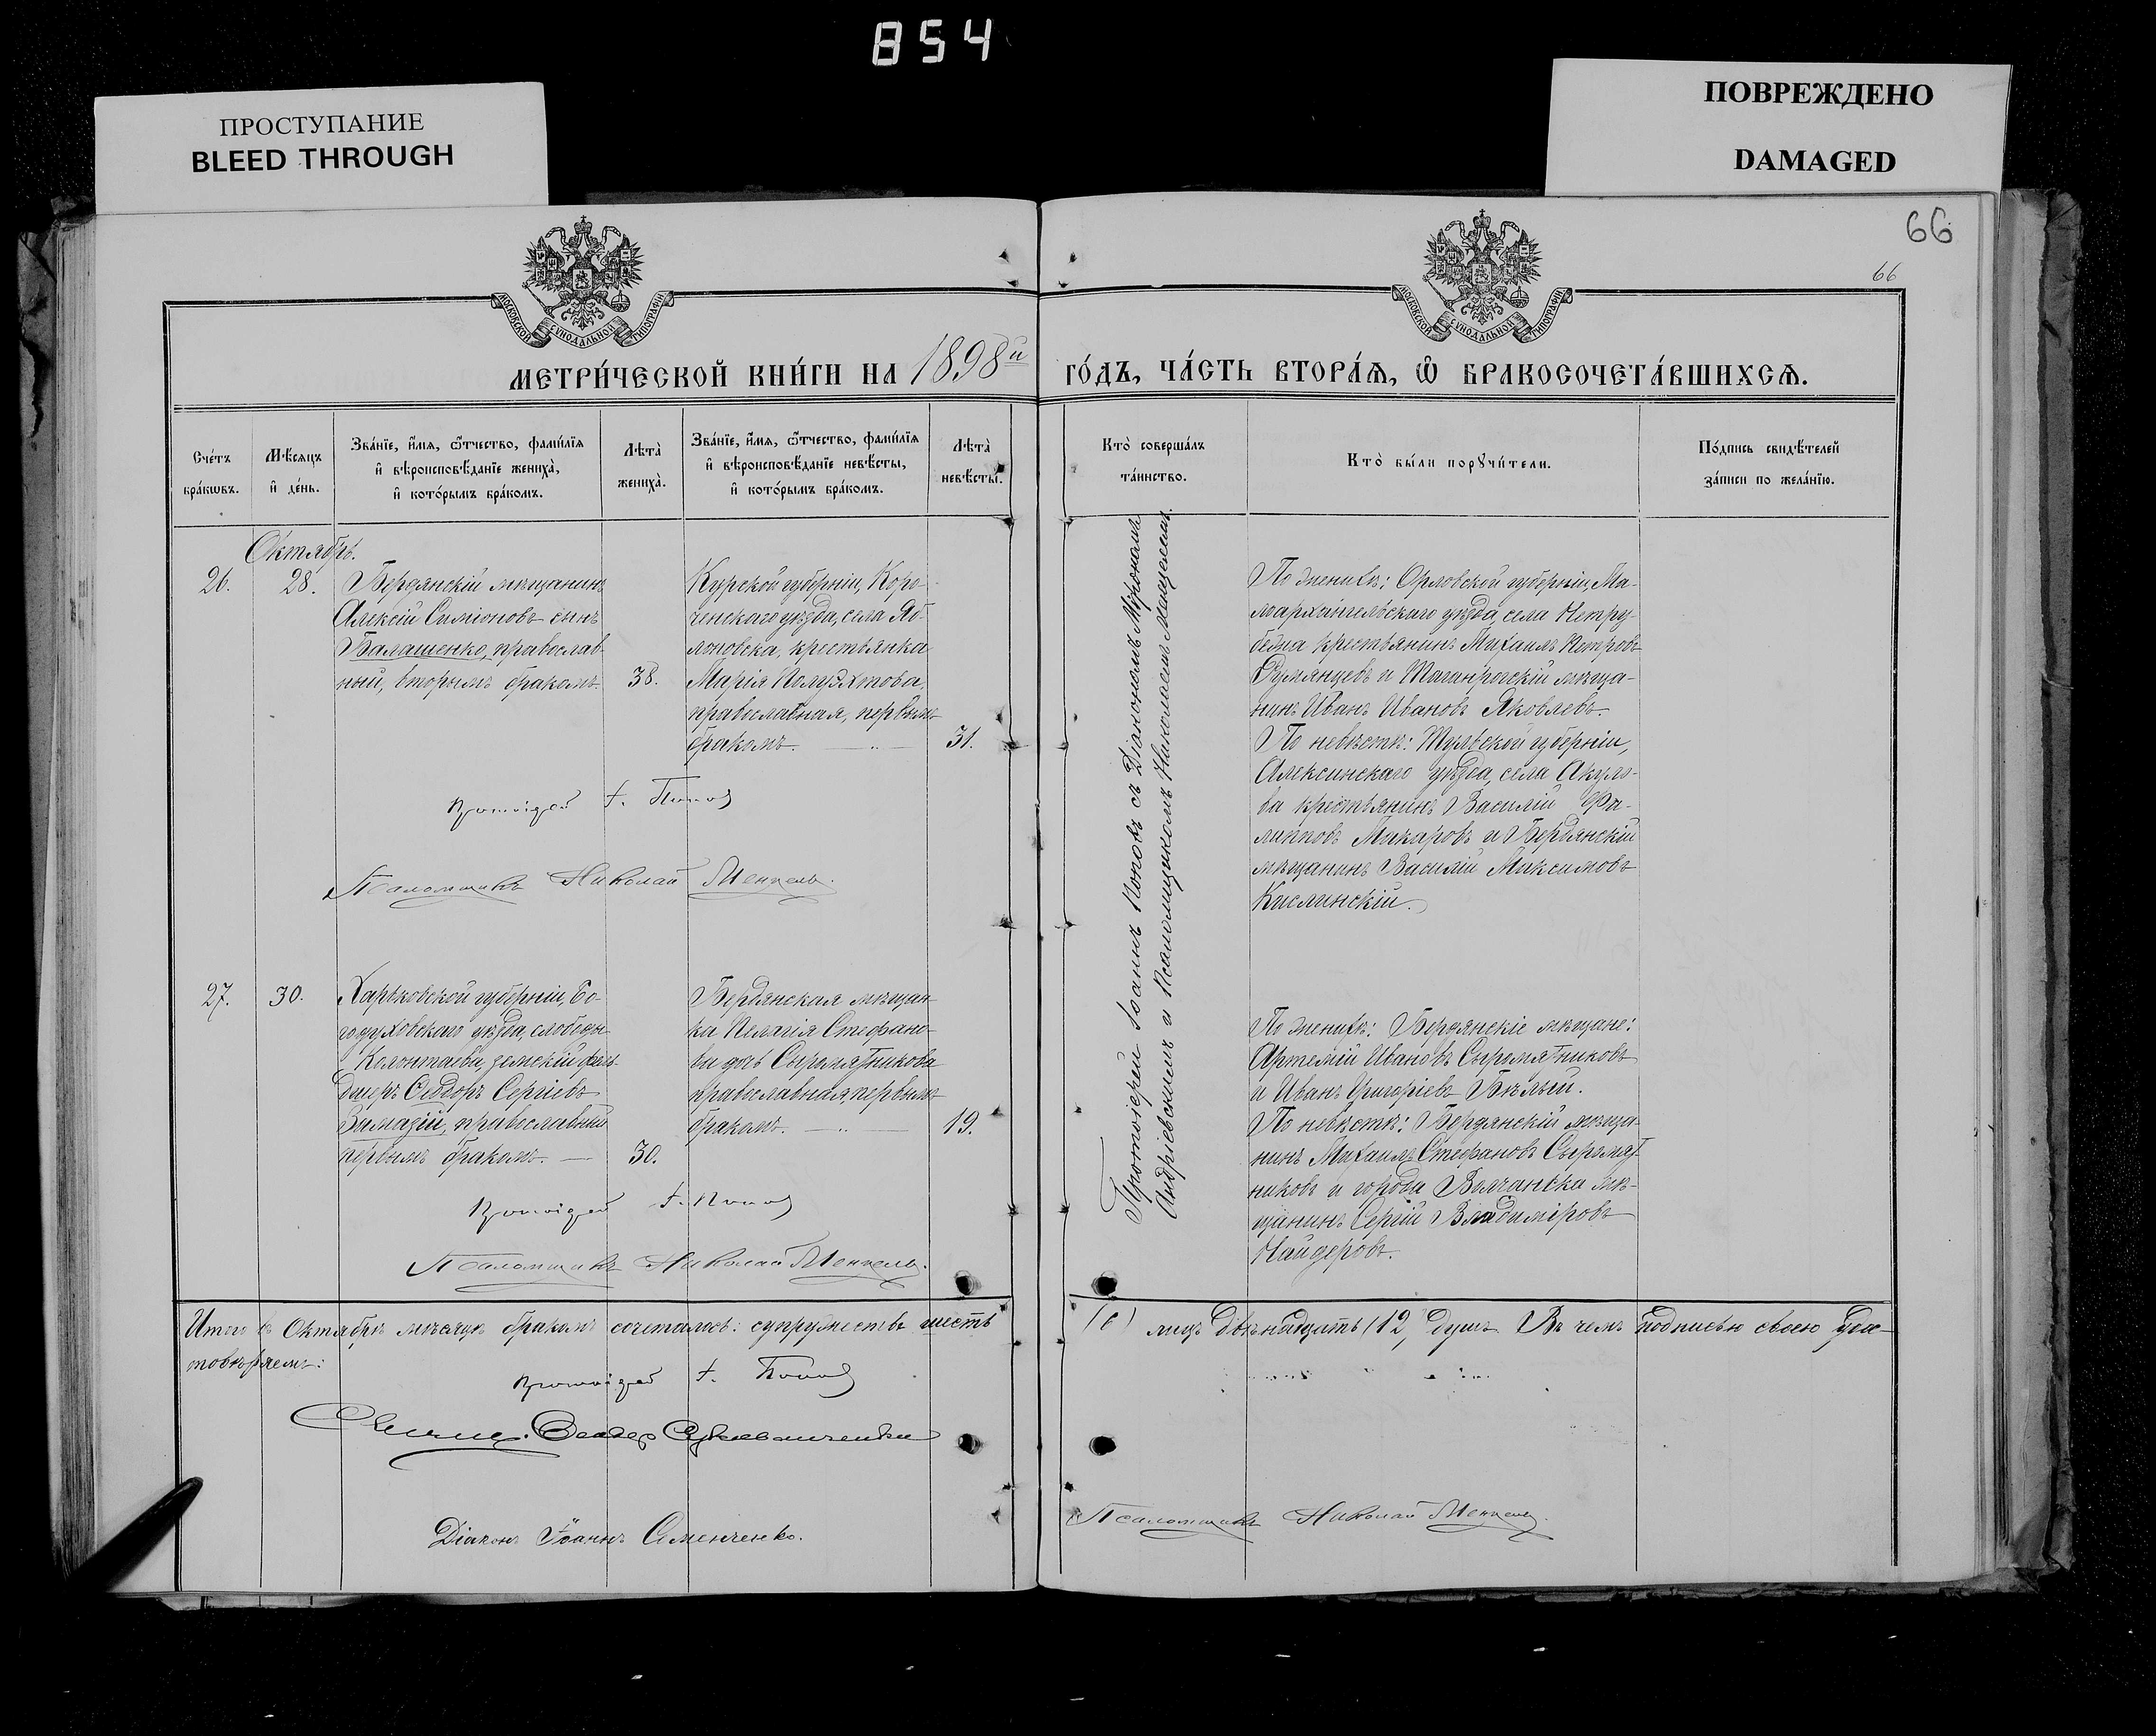 854
ПРОСТУПАНИЕ
BLEED THROUGH
ПОВРЕЖДЕНО
DAMAGED
66
66
МОСКОВСКОЙ СУНОДАЛЬНОЙ ТИПОГРАФІИ
МОСКОВСКОЙ СУНОДАЛЬНОЙ ТИПОГРАФІИ
МЕТРИ́ЧЕСКОЙ КНИ́ГИ НА 1898й ГО́ДЪ, ЧА́СТЬ ВТОРА́Ѧ, Ѽ БРАКОСОЧЕТА́ВШИХСѦ.
Сче́тъ
бра́кѡвъ.
Мѣ́сяцъ
и҆ де́нь.
Зва́нїе, и҆́мя, ѻ҆́тчество, фами́лїя
и҆ вѣроисповѣ́данїе жениха̀,
и҆ кото́рымъ бра́комъ.
Лѣта̀
жениха̀.
Зва́нїе, и҆́мя, ѻ҆́тчество, фами́лїя
и҆ вѣроисповѣ́данїе невѣ́сты,
и҆ кото́рымъ бра́комъ.
Лѣта̀
невѣ́сты.
Кто̀ соверша́лъ
та́инство.
Кто̀ бы́ли порꙋчи́тели.
По́дпись свидѣ́телей
за́писи по жела́нїю.
Октябрь.
26.
28.
Бердянскій мѣщанинъ
Алексій Симіоновъ сынъ
Балашенко, православ
ный, вторымъ бракомъ.
38.
Курской губерніи, Коро-
ченскаго уѣзда, села Яб-
лоновска, крестьянка
Марія Полуэктова,
православная, первымъ
бракомъ. — „ —
31.
Протоіерей І. Поповъ
Псаломщикъ Николай Менцель.
Протоіерей Іоаннъ Поповъ съ Діакономъ Мѵрономъ
Андріевскимъ и Псаломщикомъ Николаемъ Менцелемъ.
По женихѣ: Орловской губерніи, Ма-
лоархангельскаго уѣзда, села
крестьянинъ Михаилъ Петровъ
Румянцевъ и Таганрогскій мѣща-
нинъ Иванъ Ивановъ Яковлевъ.
По невѣстѣ: Тульской губерніи,
Алексинскаго уѣзда, села Акуло-
ва крестьянинъ Василій Фи-
липповъ Макаровъ и Бердянскій
мѣщанинъ Василій Максимовъ
Кислинскій.
27.
30.
Харьковской губерніи, Бо-
годуховскаго уѣзда, слободы
Колонтаева, земскій фель-
дшеръ Ѳеодоръ Сергіевъ
православный
первымъ бракомъ. —
30.
Бердянская мѣщан-
ка Пелагія Стефано-
ва дочь Сыромятникова
православная, первымъ
бракомъ. — „ —
19.
Протоіерей І. Поповъ
Псаломщикъ Николай Менцель.
По женихѣ: Бердянскіе мѣщане:
Артемій Ивановъ Сыромятниковъ
и Иванъ Григоріевъ Бѣлый.
По невѣстѣ: Бердянскій мѣща-
нинъ Михаилъ Стефановъ Сыромят-
никовъ и города Волчанска мѣ-
щанинъ Сергій Владиміровъ
Найдеровъ.
Итого въ Октябрѣ мѣсяцѣ бракомъ сочеталось: супружествъ шесть (6) лицъ двѣнадцать (12) душъ. Въ чемъ подписью своею удос-
товѣряемъ:
Протоіерей І. Поповъ
Діаконъ Іоаннъ Семенченко.
Псаломщикъ Николай Менцель.